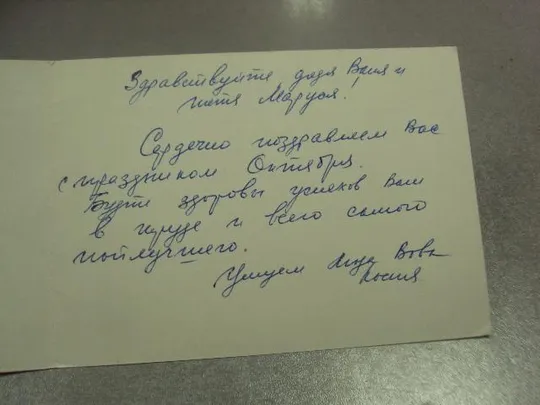 Здравствуйте, дядя Ваня и
тётя Маруся!
Сердечно поздравляем Вас
с праздником Октября.
Будте здоровы успехов Вам
в труде и всего самого
найлучшего.
Целуем Вова